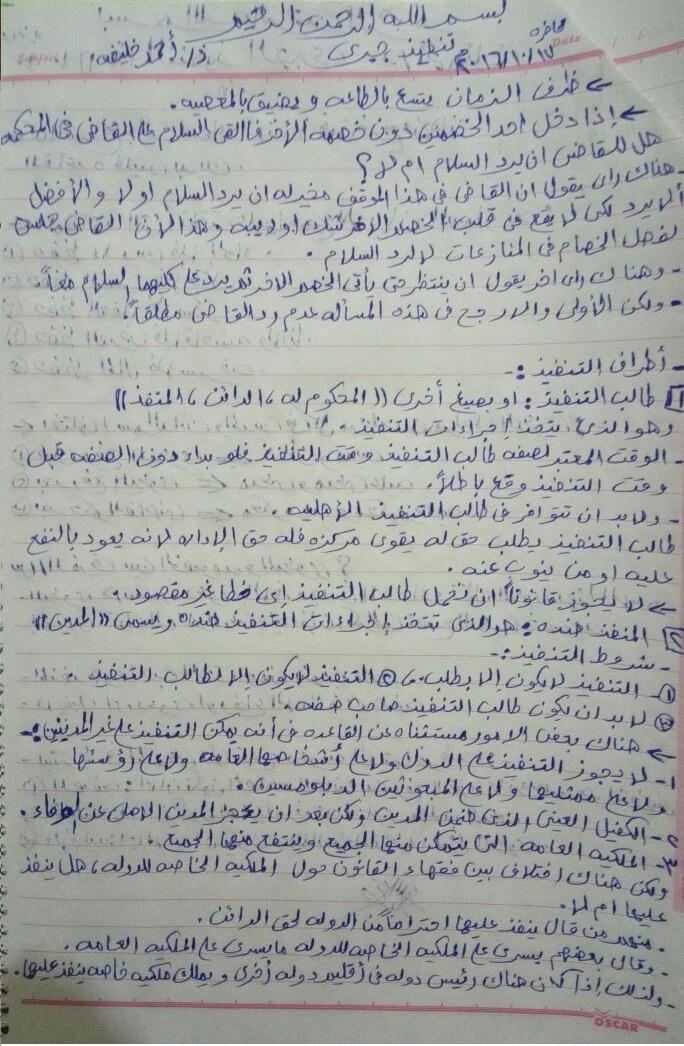 بسم الله الرحمن الرحيم
محاضرة
١٧/١٠/٢٠١٦م تنفيذ جبرى د/ أحمد خليفه
← ظرف الزمان يتسع بالطاعه و يضيق بالمعصيه.
← إذا دخل احد الخصمين دون خصمه الأخر فالقى السلام على القاضى فى المحكمه
هل للقاضى ان يرد السلام ام لا؟
- هناك راى يقول ان القاضى فى هذا الموقف مخير له ان يرد السلام او لا والأفضل
ألا يرد لكى لا يقع فى قلب الخصم الاخر شك او ريبه وهذا لأن القاضى جلس
لفصل الخصام فى المنازعات لا لرد السلام.
- وهناك راى اخر يقول ان ينتظر حتى يأتى الخصم الاخر ثم يرد على كليهما السلام معاً.
- ولكن الأولى والارجح فى هذه المسأله عدم رد القاضى مطلقاً.
- أطراف التنفيذ :-
١ طالب التنفيذ : او بصيغ أخرى (( المحكوم له ، الدائن ، المنفذ ))
وهو الذى يتخذ إجراءات التنفيذ.
- الوقت المعتد لصفه طالب التنفيذ وقت التنفيذ فلو بداء دون الصفه قبل
وقت التنفيذ وقع باطلاً.
- ولابد ان تتوافر فى طالب التنفيذ الأهليه.
طالب التنفيذ يطلب حق له يقوى مركزه فله حق الإداره لانه يعود بالنفع
عليه او من ينوب عنه.
← لا يجوز قانوناً ان نحمل طالب التنفيذ اى خطأ غير مقصود.
٢ المنفذ ضده : هو الذى تتخذ إجراءات التنفيذ ضده ويسمى (( المدين ))
- شروط التنفيذ :-
① التنفيذ لا يكون إلا بطلب. ② التنفيذ لا يكون إلا لطالب التنفيذ.
③ لابد ان يكون طالب التنفيذ صاحب صفه.
← هناك بعض الامور مستثناه عن القاعده فى أنه يمكن التنفيذ على غير المدينين :-
١- لا يجوز التنفيذ على الدول ولا على أشخاصها العامه ولا على رؤسائها
ولا على ممثليها ولا على المبعوثين الدبلوماسيين.
٢- الكفيل العينى الذى ضمن المدين ولكن بعد ان يعجز المدين الاصلى عن الوفاء.
٣- الملكيه العامه التى يتمكن منها الجميع وينتفع منها الجميع.
ولكن هناك اختلاف بين فقهاء القانون حول الملكيه الخاصه للدوله ، هل ينفذ
عليها ام لا.
- منهم من قال ينفذ عليها احتراماً من الدوله لحق الدائن.
- وقال بعضهم يسرى على الملكيه الخاصه للدوله ما يسرى على الملكيه العامه.
- ولذلك إذا كان هناك رئيس دوله فى أقليم دوله أخرى و يملك ملكيه خاصه ينفذ عليها.
OSCAR